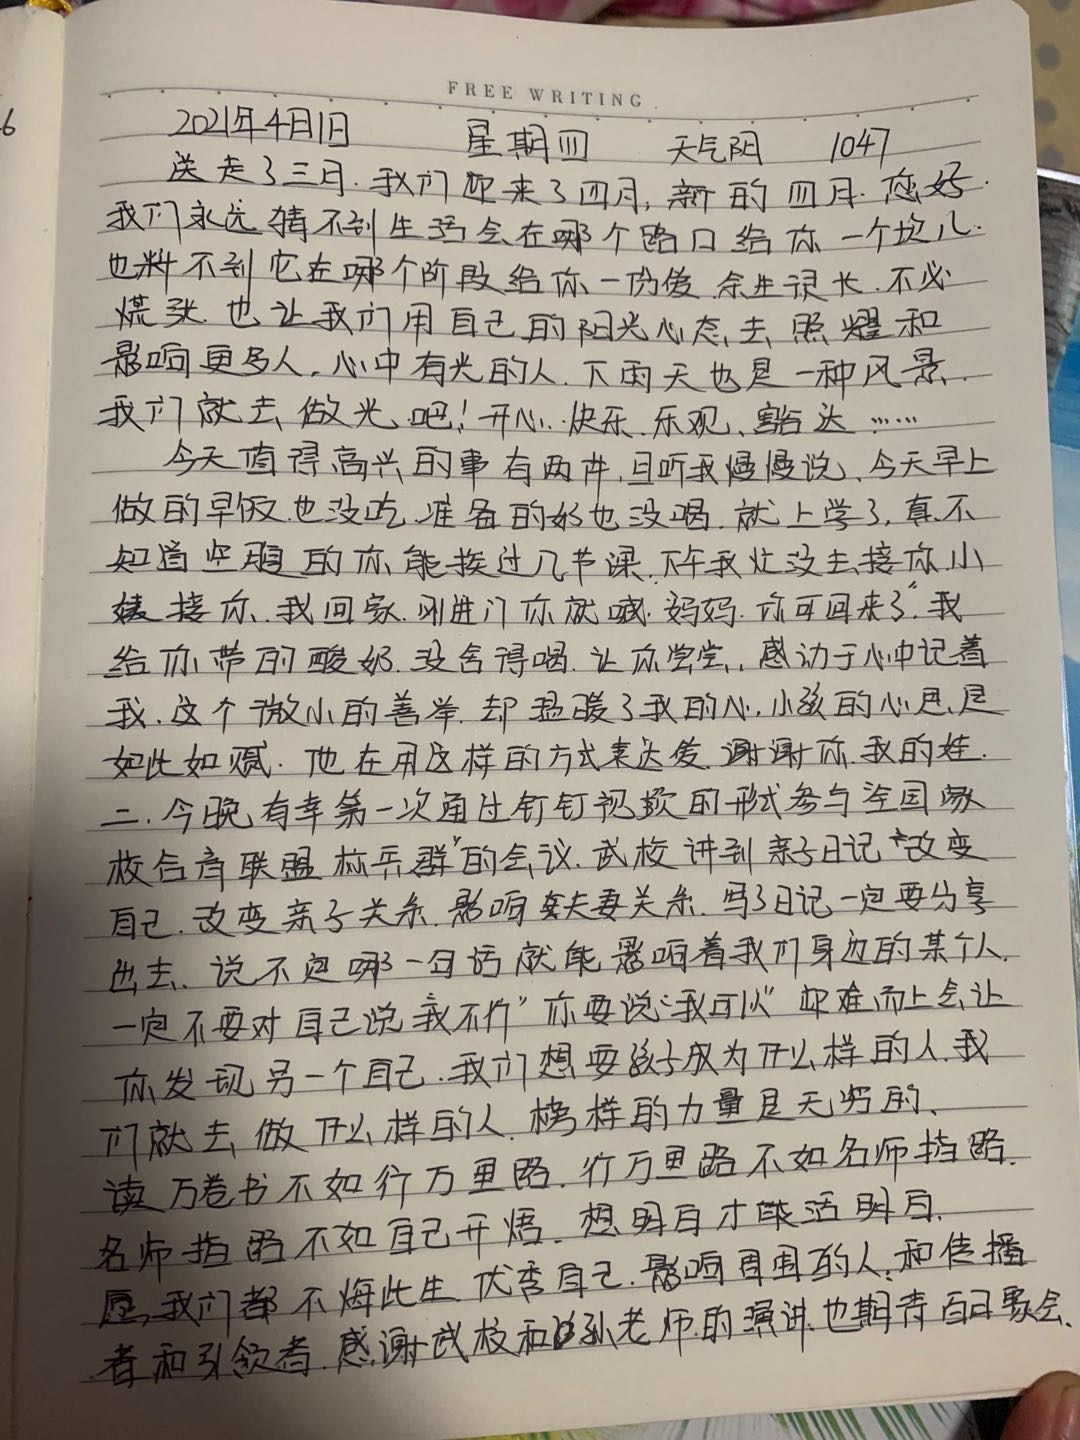 6
FREE WRITING
2021年4月1日 星期四 天气阴 1047
送走了三月.我们迎来了四月,新的四月.您好.
我们永远猜不到生活会在哪个路口给你一个坎儿.
也料不到它在哪个阶段给你一份爱.余生很长.不必
慌张.也让我们用自己的阳光心态去照耀和
影响更多人,心中有光的人.下雨天也是一种风景.
我们就去做光吧!开心.快乐.乐观、豁达……
今天值得高兴的事有两件,且听我慢慢说、今天早上
做的早饭也没吃.准备的奶也没喝.就上学了,真不
知道空腹的你能挨过几节课.下午我忙没去接你.小
姨接你、我回家.刚进门你就喊.妈妈.你可回来了"我
给你带的酸奶.没舍得喝.让你尝尝,感动于心中记着
我.这个微小的善举.却温暖了我的心,小孩的心思是
如此如腻.他在用这样的方式表达爱.谢谢你.我的娃.
二.今晚有幸第一次通过钉钉视频的形式参与全国家
校合育联盟标兵群"的会议.武校讲到亲子日记"改变
自己.改变亲子关系.影响夫妻关系.写了日记一定要分享
出去.说不定哪一句话就能影响着我们身边的某个人.
一定不要对自己说"我不行"你要说"我可以"迎难而上会让
你发现另一个自己.我们想要孩子成为什么样的人.我
们就去做什么样的人.榜样的力量是无穷的、
读万卷书不如行万里路.行万里路不如名师指路.
名师指路不如自己开悟.想明白才能活明白、
愿我们都不悔此生.优秀自己.影响周围的人.和传播
者和引领者.感谢武校和孙老师的演讲.也期待百日聚会.